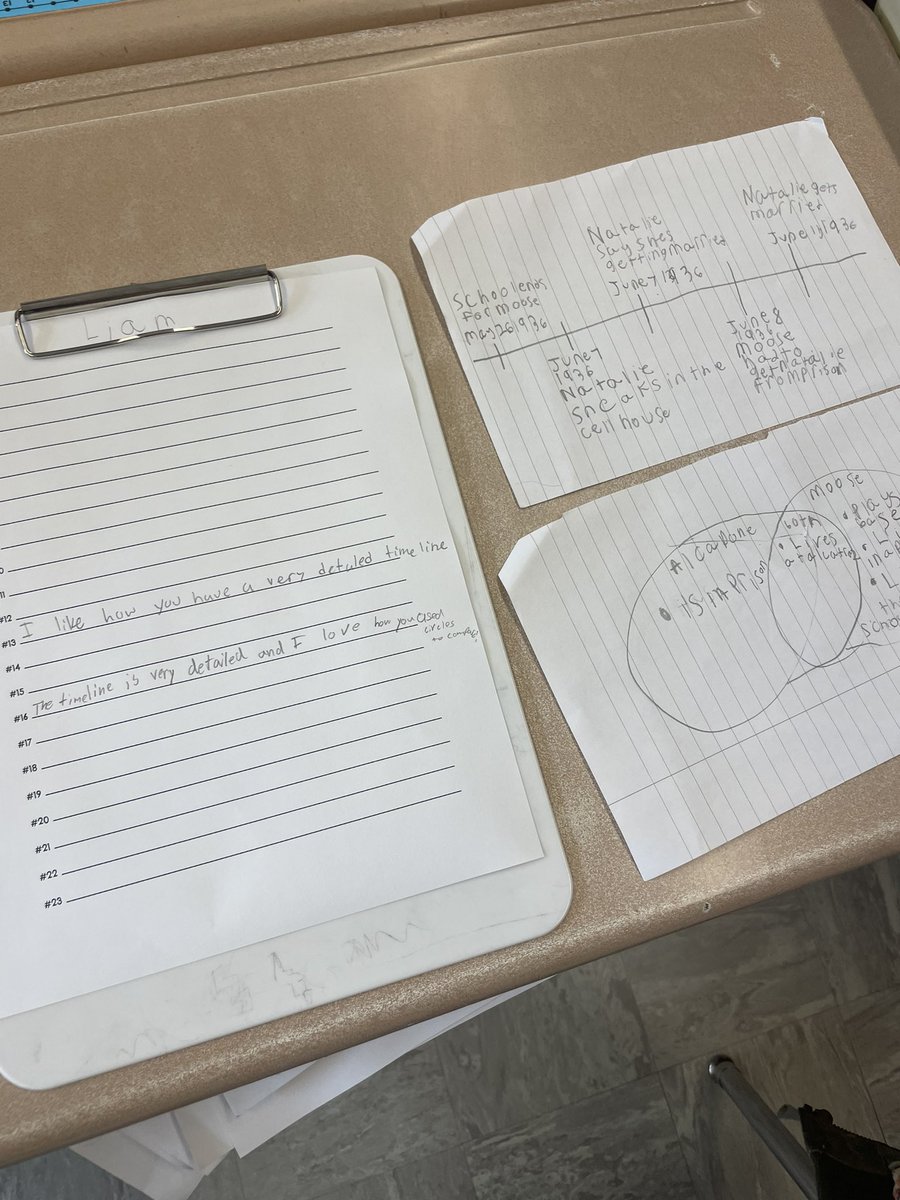 Liam
#12
I like how you have a very detuled time line
#13
#14
#15
The timeline is very detailed and I love how you used
circles
to compare!
#16
#17
#18
#19
#20
#21
#22
#23
School ends
for moose
may 26 1936
Natalie
says shes
getting married
June 7 1936
Natalie gets
married
June 1936
June 7
1936
Natalie
sneaks in the
cell house
June 8
1936
moose
had to
get Natalie
from Prison
Al capone
• is in Prison
both
• Lives
moose
• Plays
base
• L
in a
• L
th
school